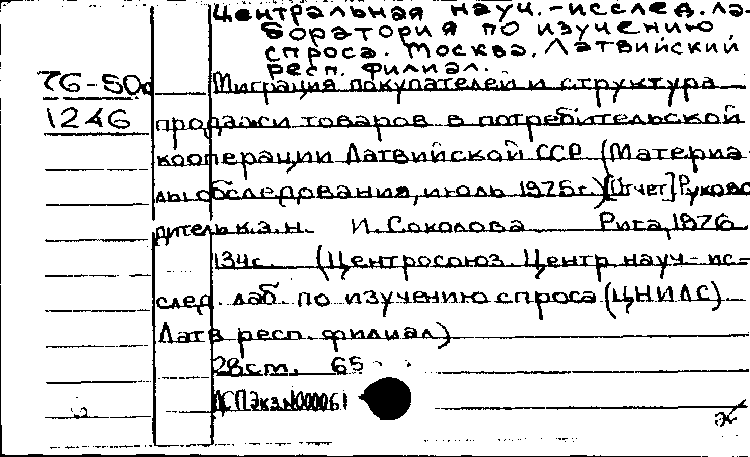 Центральная науч.-исслед. ла-
боратория по изучению
спроса. Москва. Латвийский
респ. филиал.
76-50
Миграция покупателей и структура
1246
продажи товаров в потребительской
кооперации Латвийской ССР (Материа-
лы обследования, июль 1975г.) [Отчет] Руково-
дитель к.э.н. И. Соколова Рига, 1976
134с. (Центросоюз. Центр. науч.-ис-
след. лаб. по изучению спроса (ЦНИЛС)
Латв респ. филиал)
28см. 65
ДСП экз. N000061